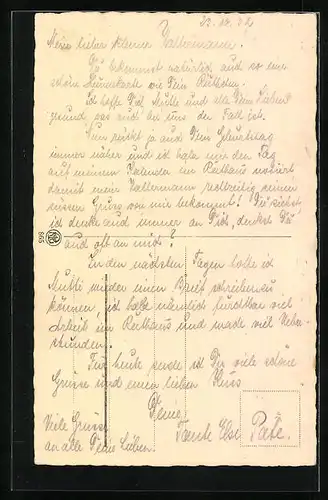 Mein lieber kleiner
Du bekommst natürlich auch so eine
schöne Hundekarte wie Dein
ich hoffe Mutti und alle Deine Lieben
gesund was auch bei uns der Fall ist.
Nun rückt ja auch Dein Geburtstag
immer näher und ich habe mir den Tag
auf meinen Kalender im Rathaus notiert
damit mein rechtzeitig einen
süssen Gruss von mir bekommt! Du siehst
ich denke auch immer an Dich, denkst Du
auch oft an mich?
In den nächsten Tagen hoffe ich
Mutti wieder einen Brief schreiben zu
können, ich habe nämlich furchtbar viel
Arbeit im Rathaus und mache viel Über-
stunden.
Für heute sende ich Dir viele schöne
Grüsse und einen lieben Kuss
Deine
Tante Else
Pate.
Viele Grüsse
an alle Deine Lieben.
565